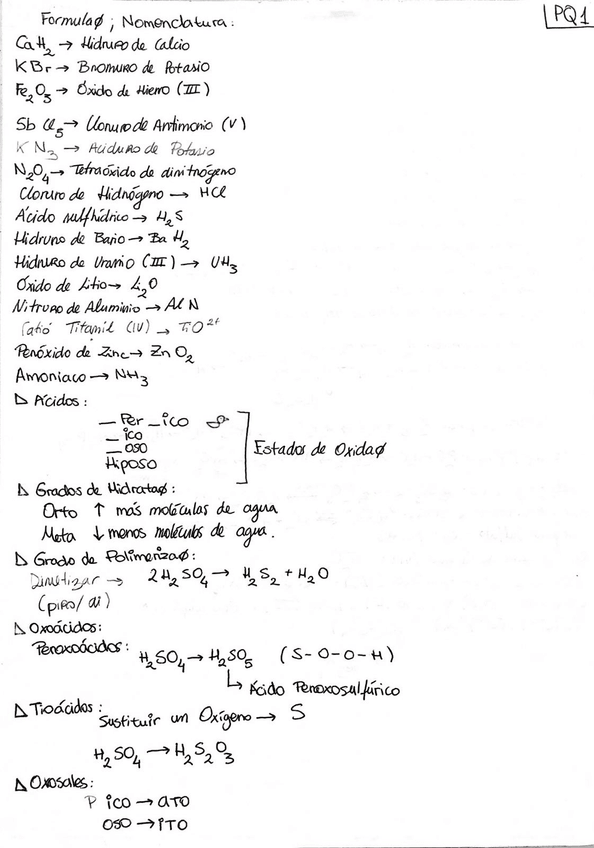 PQ1
Formulaø ; Nomenclatura:
CaH₂ → Hidruro de Calcio
KBr → Bromuro de Potasio
Fe₂O₃ → Óxido de Hierro (III)
SbCl₅ → Cloruro de Antimonio (V)
KN₃ → Aciduro de Potasio
N₂O₄ → Tetraóxido de dinitrógeno
Cloruro de Hidrógeno → HCl
Ácido sulfhídrico → H₂S
Hidruro de Bario → BaH₂
Hidruro de Uranio (III) → UH₃
Óxido de Litio → Li₂O
Nitruro de Aluminio → AlN
Catió Titamil (IV) → TiO²⁺
Peróxido de Zinc → ZnO₂
Amoniaco → NH₃
▷ Ácidos:
— Per _ico
— ico
— oso
Hiposo
Estados de Oxidaø
▷ Grados de Hidrataø:
Orto ↑ más moléculas de agua
Meta ↓ menos moléculas de agua.
▷ Grado de Polimerizaø:
Dimetizar → 2H₂SO₄ → H₂S₂ + H₂O
(piro/di)
▷ Oxoácidos:
Peroxoácidos: H₂SO₄ → H₂SO₅ (S-O-O-H)
↳ Ácido Peroxosulfúrico
▷ Tioácidos:
Sustituir un Oxígeno → S
H₂SO₄ → H₂S₂O₃
▷ Oxosales:
P ico → ato
oso → ito